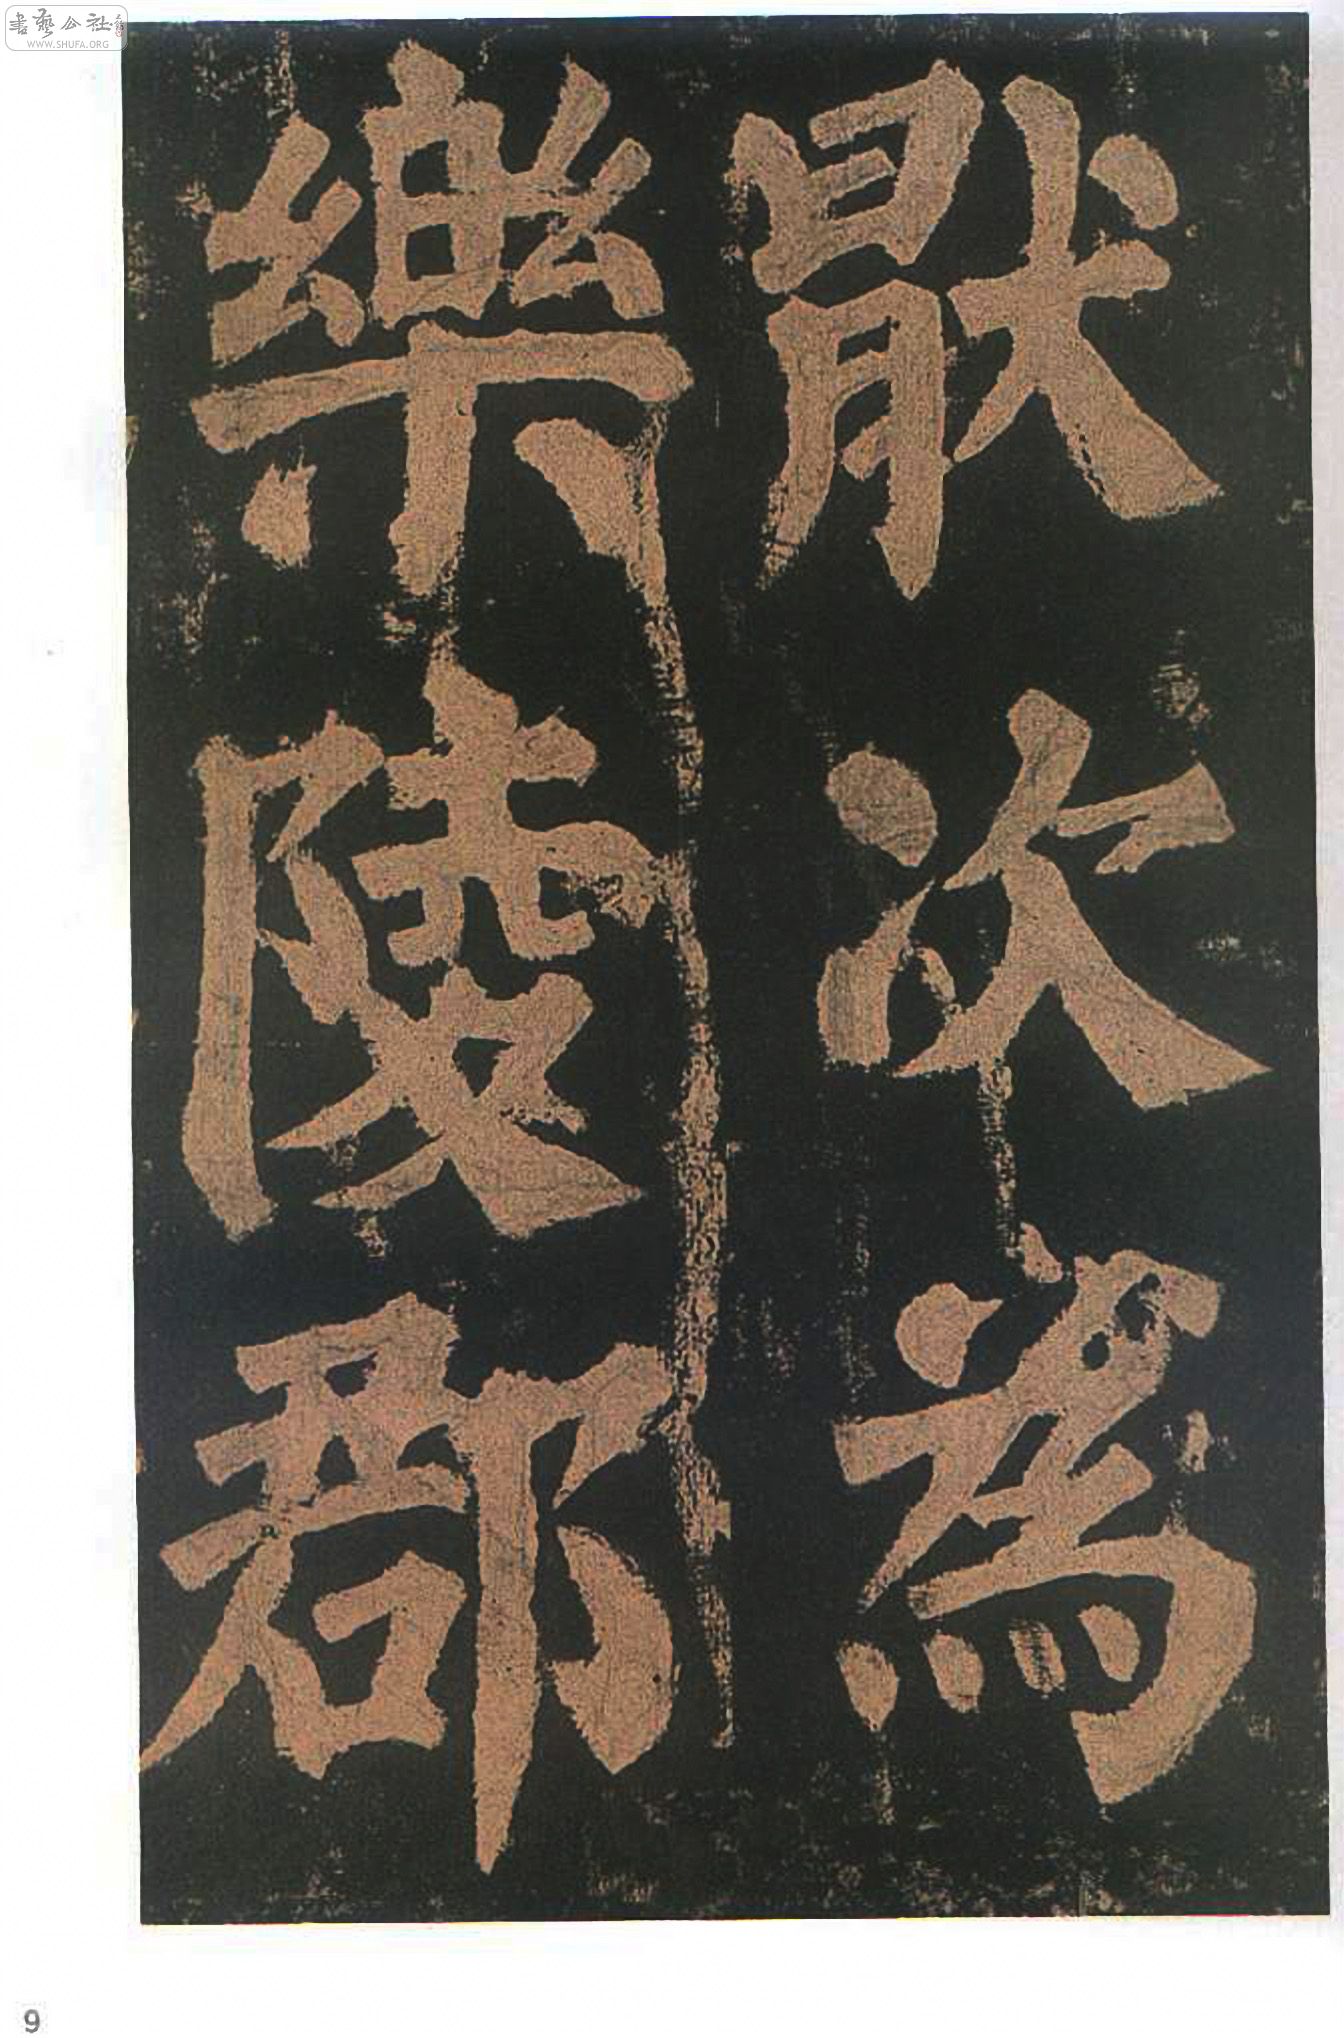 猒次為
樂陵郡
書藝公社
WWW.SHUFA.ORG
9